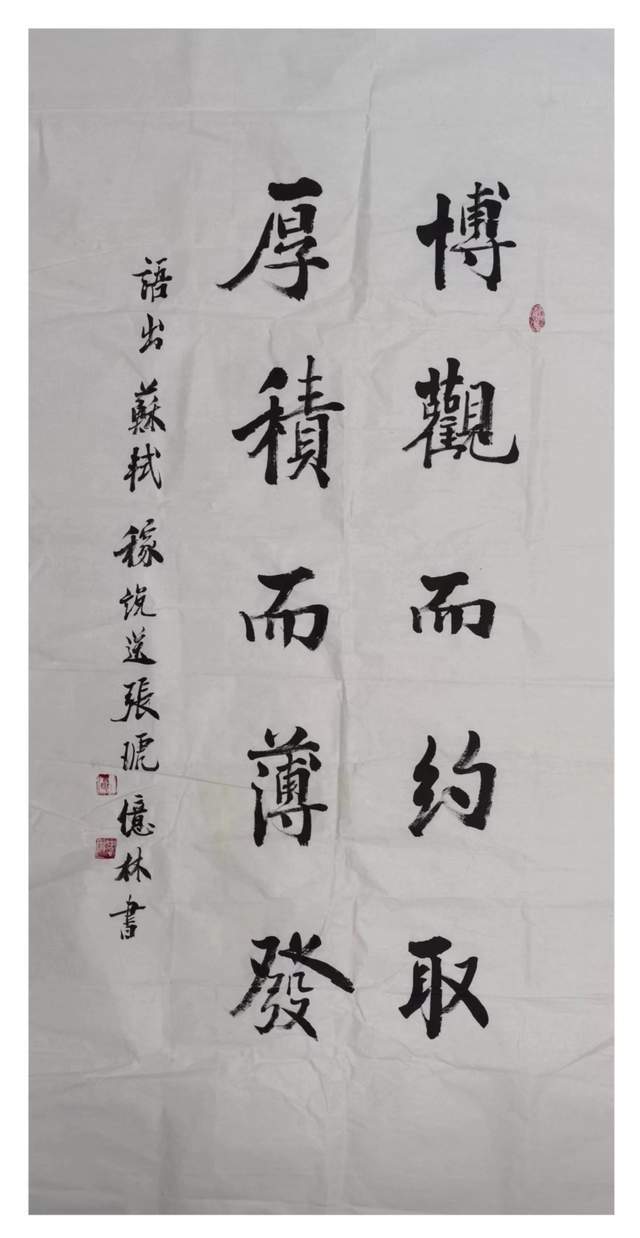 博觀而約取
厚積而薄發
語出蘇軾稼說送張琥億林書